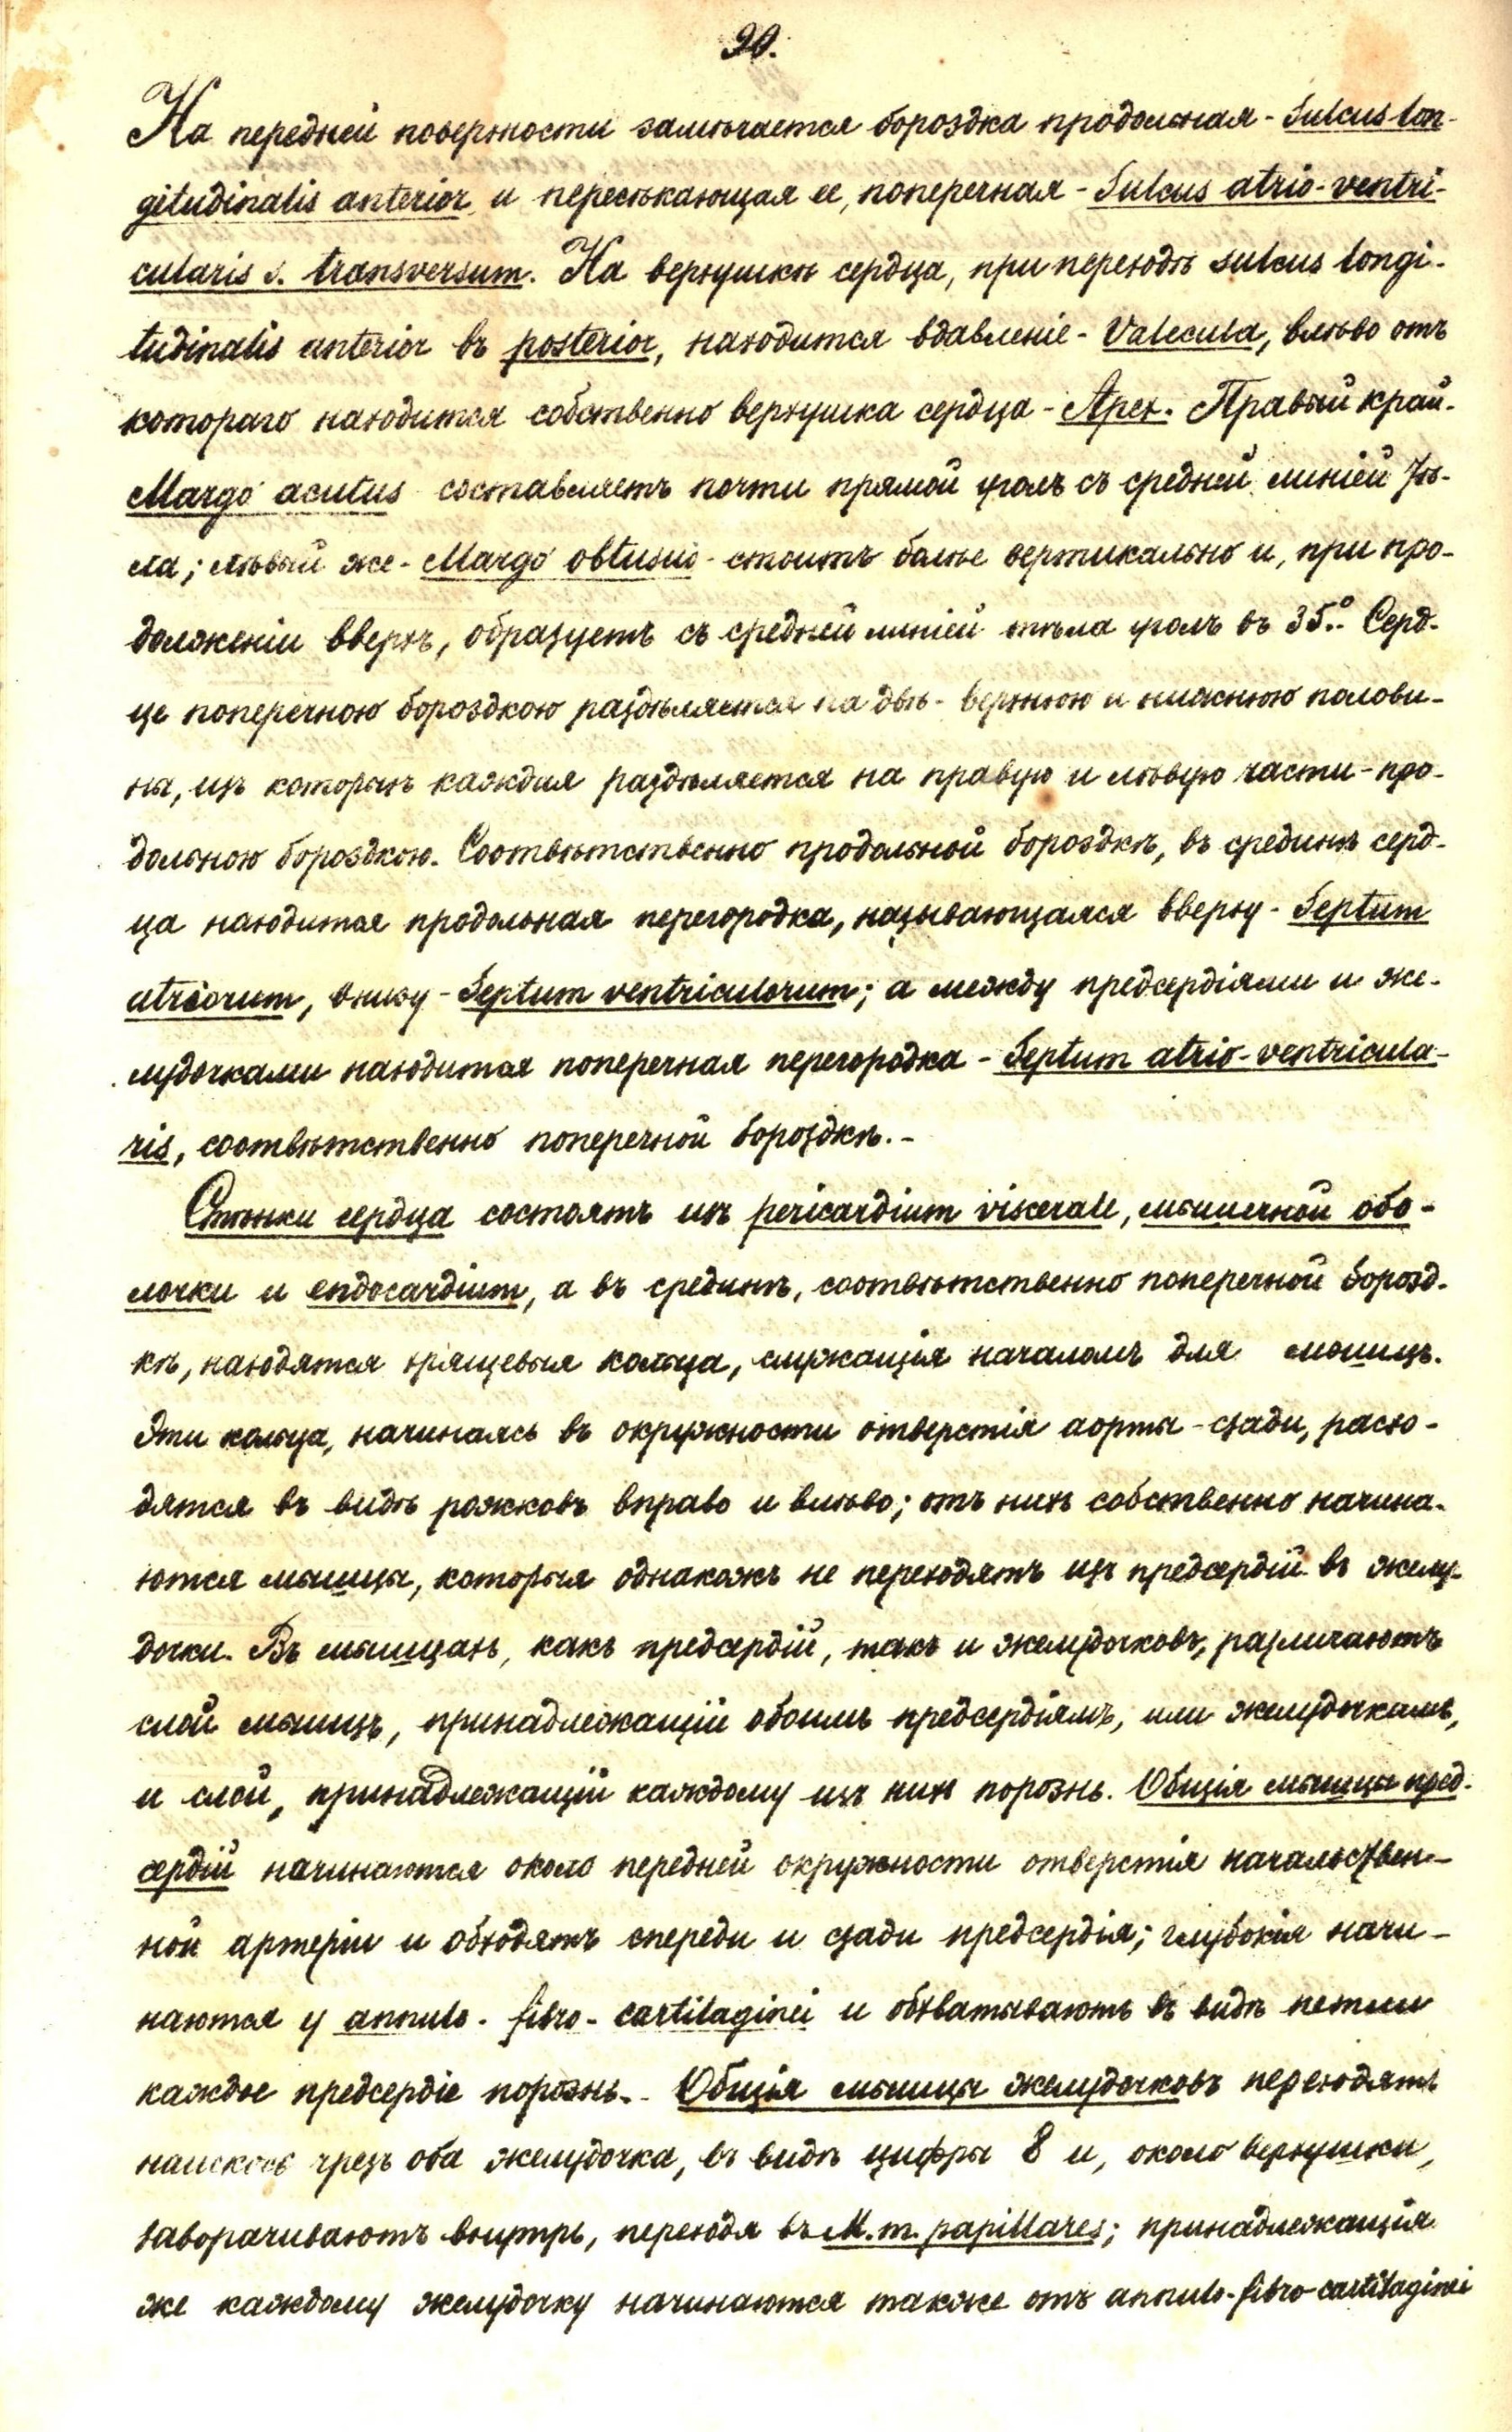 20.
На передней поверхности замѣчается бороздка продольная - Sulcus lon-
gitudinalis anterior и пересѣкающая ее, поперечная - Sulcus atrio-ventri-
cularis s. transversum. На верхушкѣ сердца, при переходѣ sulcus longi-
tudinalis anterior въ posterior, находится вдавленіе - Valecula, влѣво отъ
котораго находится собственно верхушка сердца - Apex. Правый край -
Margo acutus составляетъ почти прямой уголъ съ средней линіей тѣ-
ла; лѣвый же - Margo obtusus - стоитъ болѣе вертикально и, при про-
долженіи вверхъ, образуетъ съ средней линіей тѣла уголъ въ 35°. Серд-
це поперечною бороздкою раздѣляется на двѣ - верхнюю и нижнюю полови-
ны, изъ которыхъ каждая раздѣляется на правую и лѣвую части - про-
дольною бороздкою. Соотвѣтственно продольной бороздкѣ, въ срединѣ серд-
ца находится продольная перегородка, называющаяся вверху - Septum
atriorum, внизу - Septum ventriculorum; а между предсердіями и же-
лудочками находится поперечная перегородка - Septum atrio-ventricula-
ris, соотвѣтственно поперечной бороздкѣ. -
Стѣнки сердца состоятъ изъ pericardium viscerale, мышечной обо-
лочки и endocardium, а въ срединѣ, соотвѣтственно поперечной борозд-
кѣ, находятся хрящевыя кольца, служащія началомъ для мышцъ.
Эти кольца, начинаясь въ окружности отверстія аорты - сзади, расхо-
дятся въ видѣ рожковъ вправо и влѣво; отъ нихъ собственно начина-
ются мышцы, которыя однакожъ не переходятъ изъ предсердій въ желу-
дочки. Въ мышцахъ, какъ предсердій, такъ и желудочковъ, различаютъ
слой мышцъ, принадлежащій обоимъ предсердіямъ, или желудочкамъ,
и слой, принадлежащій каждому изъ нихъ порознь. Общія мышцы пред-
сердій начинаются около передней окружности отверстія начальствен-
ной артеріи и обходятъ спереди и сзади предсердія; глубокія начи-
наются у annulo-fibro-cartilaginei и обхватываютъ въ видѣ петли
каждое предсердіе порознь. - Общія мышцы желудочковъ переходятъ
наискось чрезъ оба желудочка, въ видѣ цифры 8 и, около верхушки,
заворачиваютъ внутрь, переходя въ M.m. papillares; принадлежащія
же каждому желудочку начинаются также отъ annulo-fibro-cartilaginei